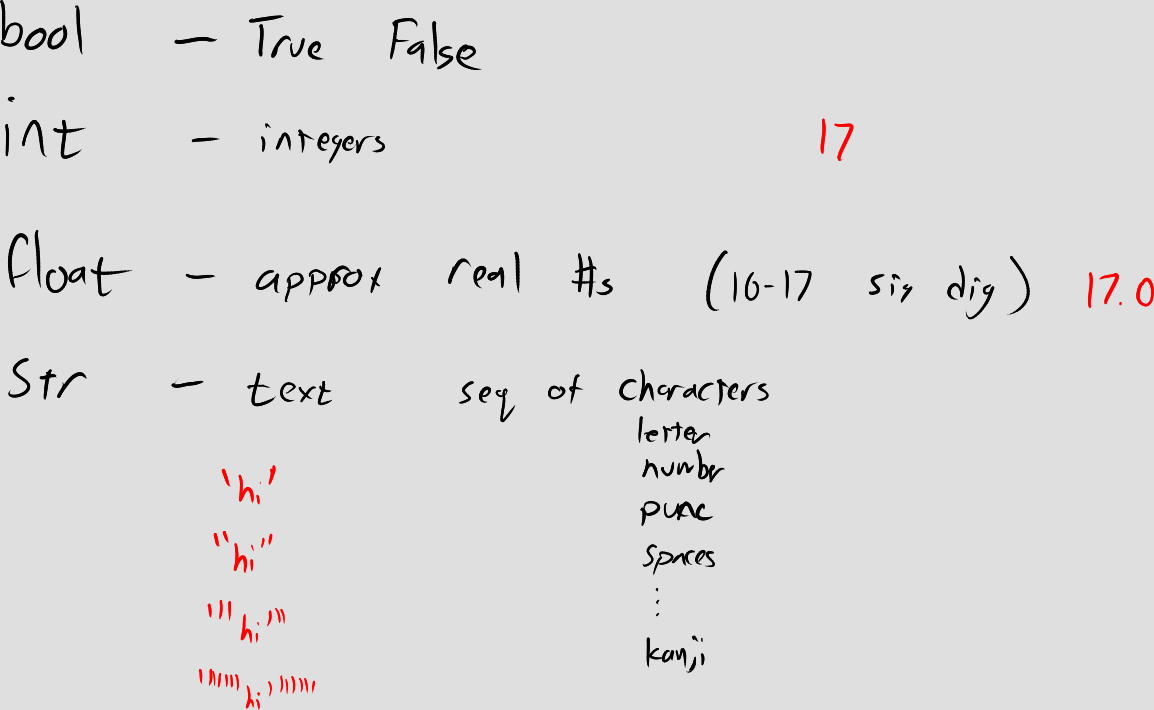 bool - True False
int - integers 17
float - approx real #s (16-17 sig dig) 17.0
str - text seq of characters
letter
number
'hi'
punc
"hi"
spaces
⋮
'''hi'''
kanji
"""hi"""